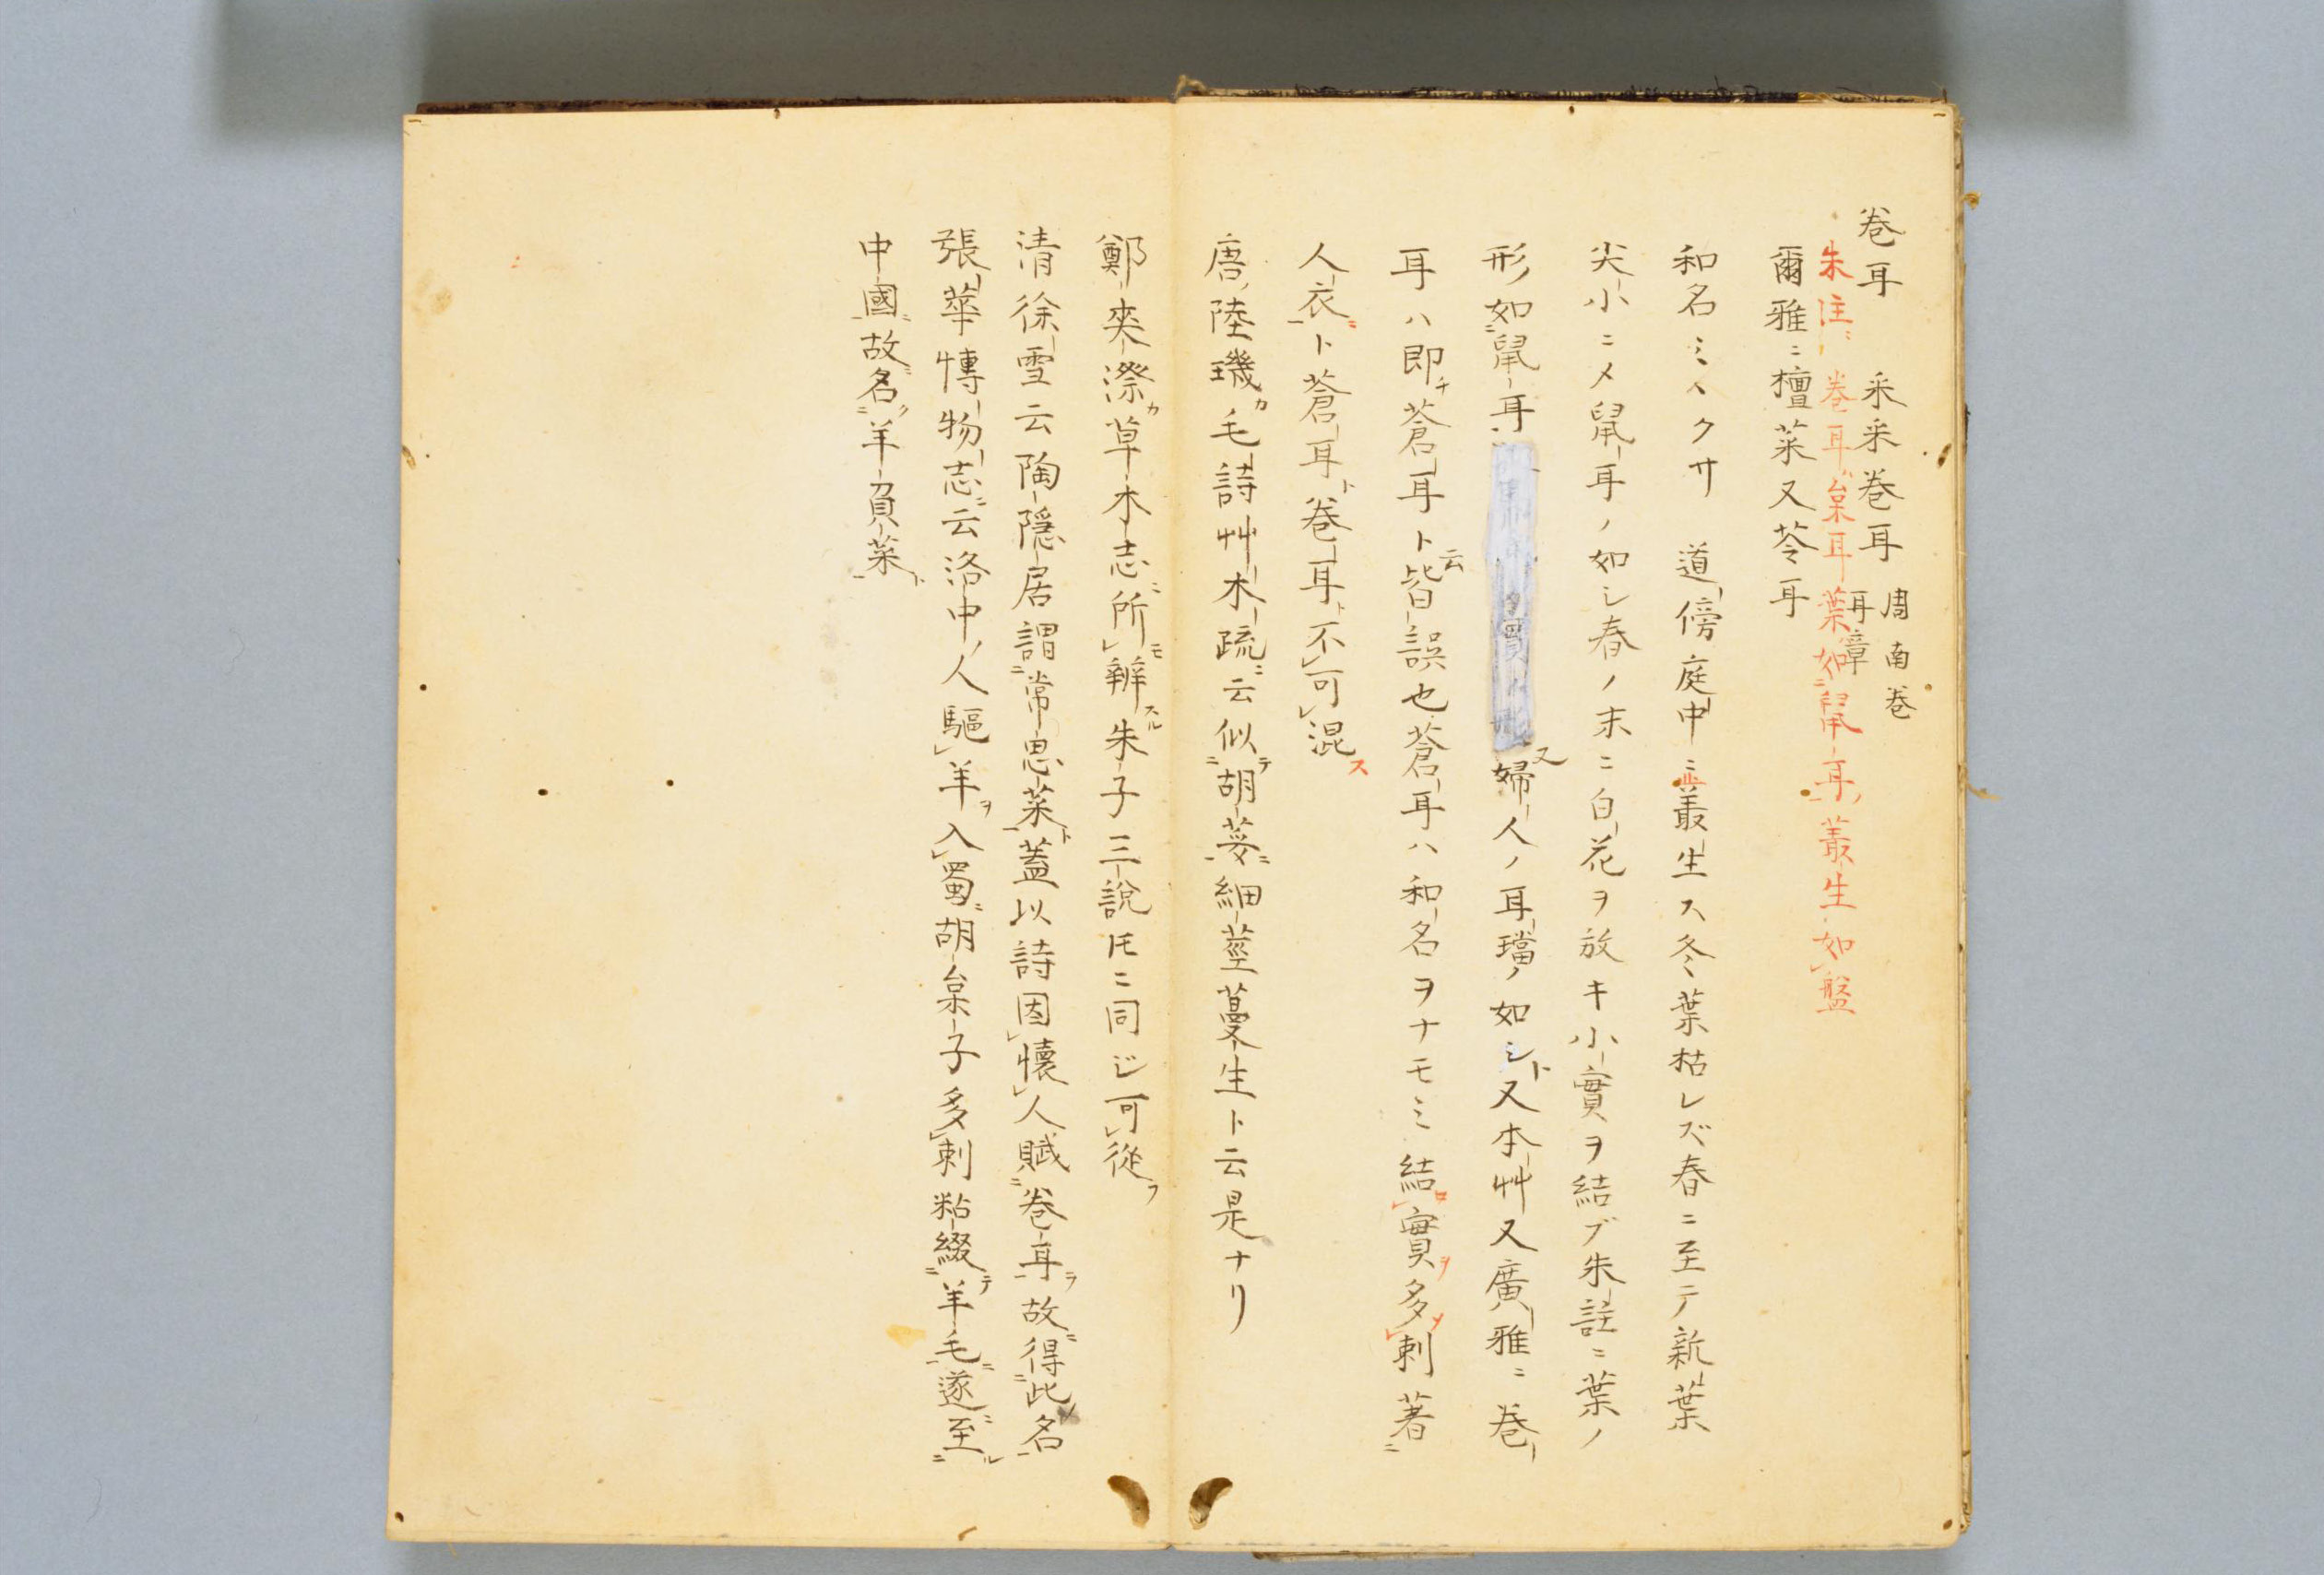 巻耳　采采巻耳　周南巻耳章
朱注ニ巻耳ハ枲耳葉如鼠耳叢生如盤
爾雅ニ檀菜又苓耳
和名ミヽクサ　道傍庭中ニ叢生ス冬葉枯レズ春ニ至テ新葉
尖小ニメ鼠耳ノ如シ春ノ末ニ白花ヲ放キ小實ヲ結ブ朱註ニ葉ノ
形如鼠耳又婦人ノ耳璫ノ如シト又本艸又廣雅ニ巻
耳ハ即チ蒼耳ト云皆誤也蒼耳ハ和名ヲナモミ結實ヲ多刺著
人衣ニト蒼耳ト巻耳ト不可混ス
唐ノ陸璣カ毛詩艸木疏ニ云似テ胡荽ニ細莖蔓生ト云是ナリ
鄭夾漈カ草木志ニ所辨スル朱子三說ㇳモニ同ジ可從フ
清徐雪云陶隠居謂常思菜ト蓋以詩因懐人賦巻耳ヲ故ニ得此ノ名
張華博物志ニ云洛中ノ人驅羊ヲ入蜀ニ胡枲子多刺粘綴テ羊毛ニ遂ニ至ル
中國ニ故ニ名ク羊負菜ト